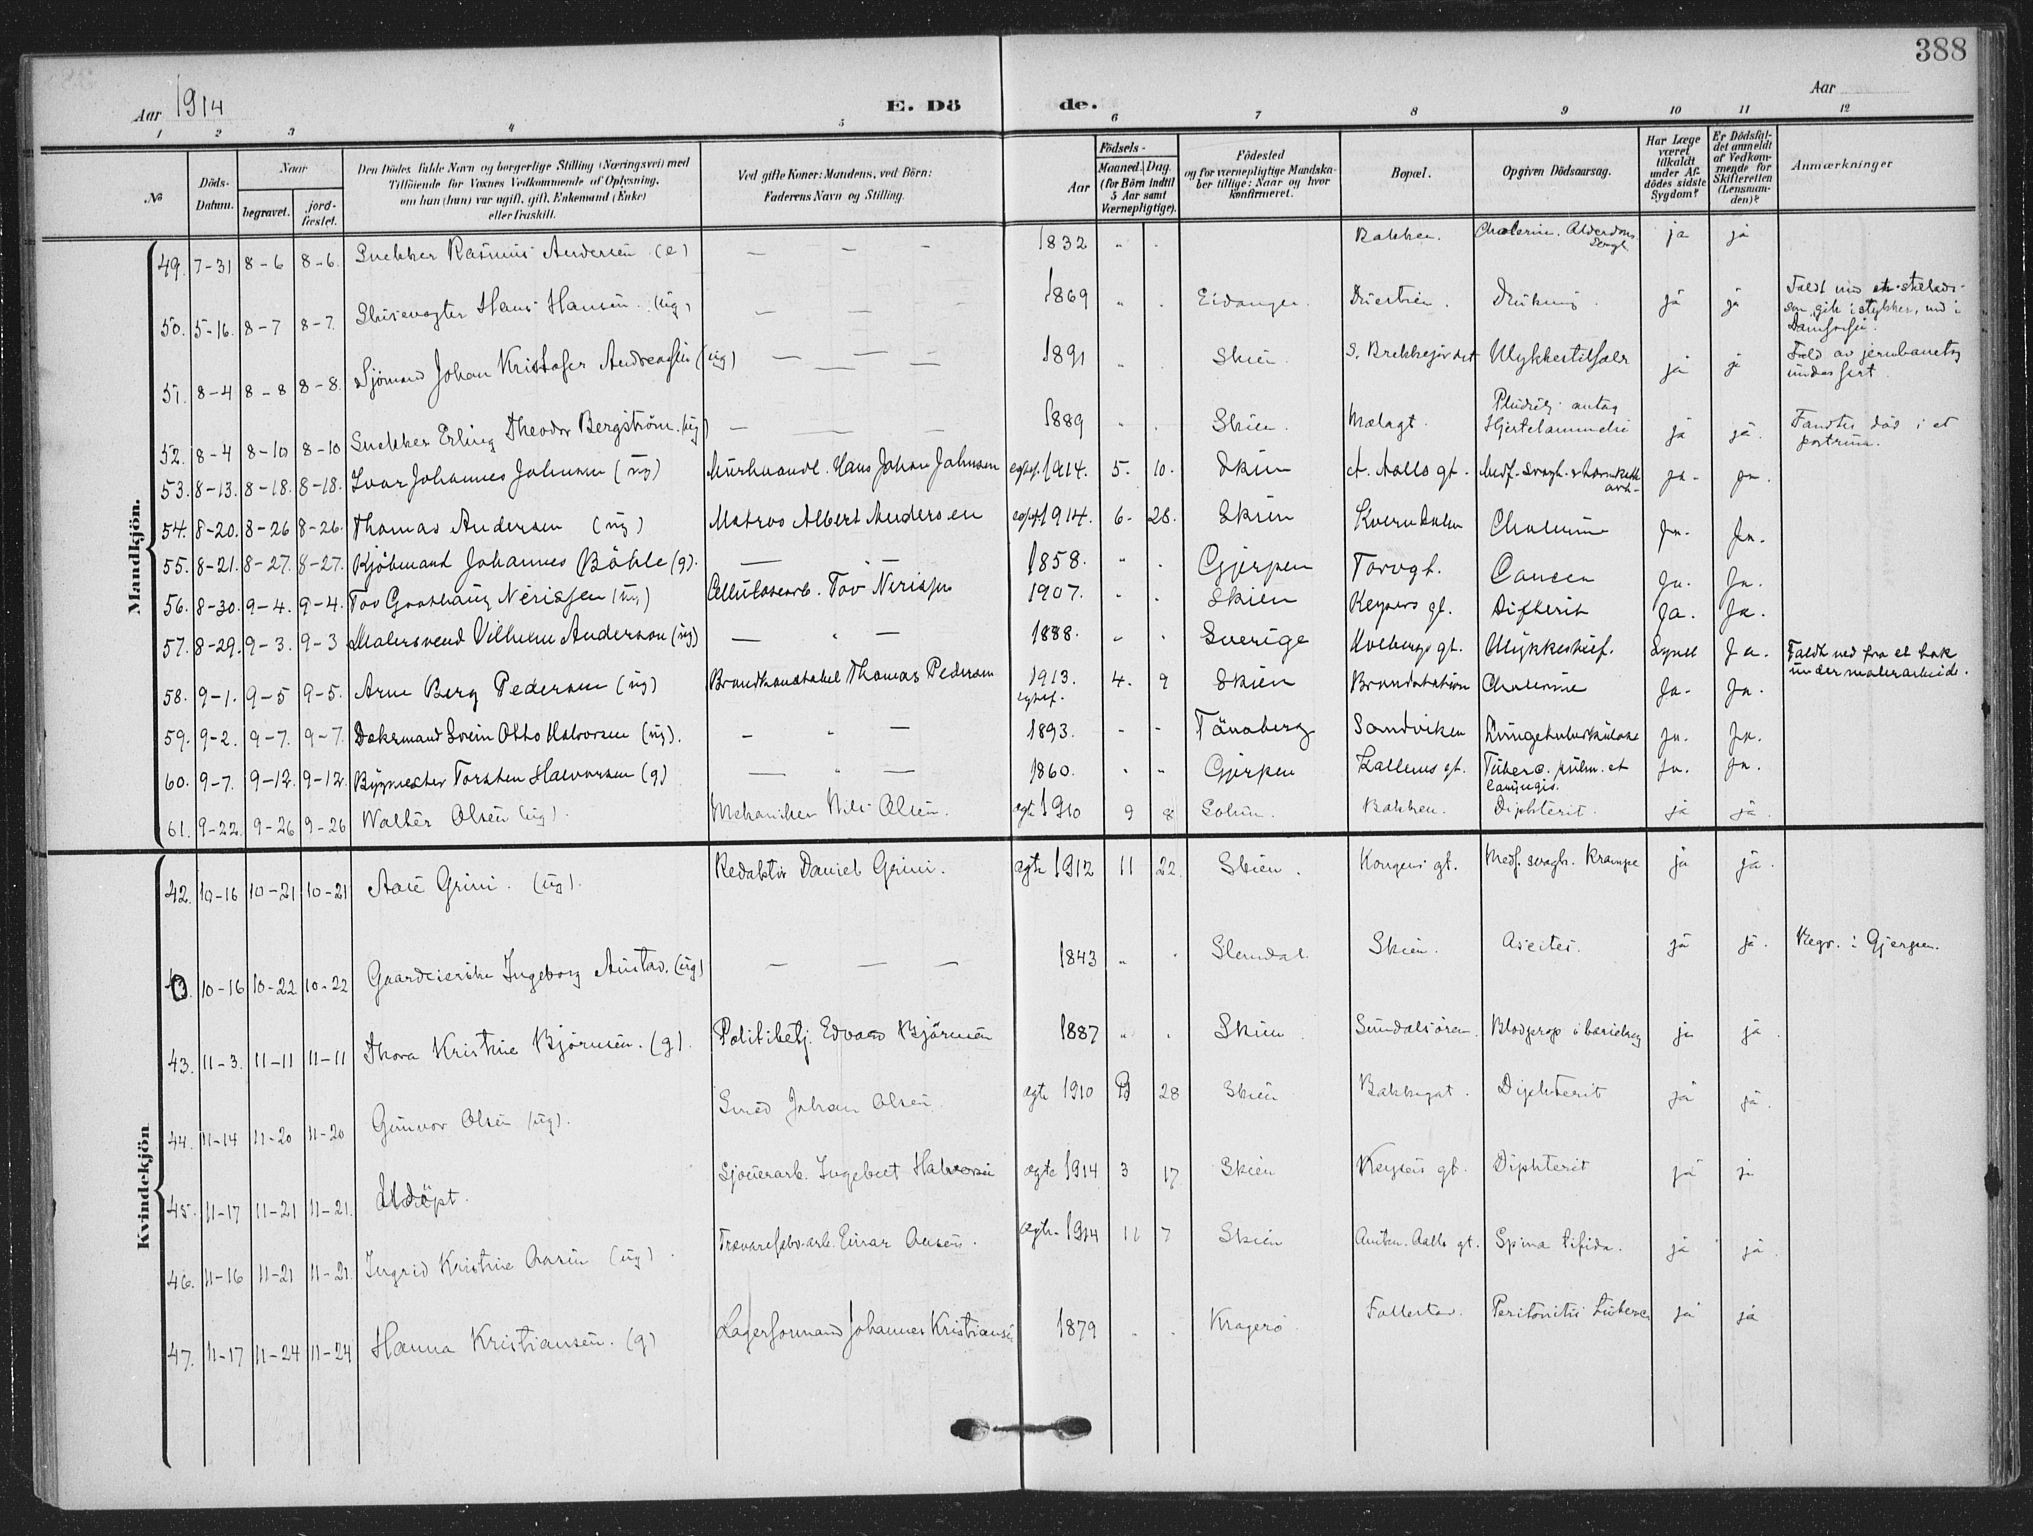 388
Aar 1914
E. Dö
de.
Aar
1 2 3 4 5 6 7 8 9 10 11 12
No
Döds-Datum.
Naar
begravet.
jord-fæstet.
Den Dödes fulde Navn og borgerlige Stilling (Næringsvei) med
Tilföiende for Voxnes Vedkommende af Oplysning,
om han (hun) var ugift, gift, Enkemand (Enke)
eller fraskilt.
Ved gifte Koner: Mandens, ved Börn:
Faderens Navn og Stilling.
Födsels-
Aar
Maaned. Dag.
(for Börn indtil
5 Aar samt
Værnepligtige).
Födested
og for værnepligtige Mandska-
ber tillige: Naar og hvor
konfirmeret.
Bopæl.
Opgiven Dödsaarsag.
Har Læge
været
tilkaldt
under Af-
dödes sidste
Sygdom?
Er Dödsfal-
det anmeldt
af Vedkom-
mende for
Skifteretten
(Lensman-
den)?
Anmærkninger
Mandkjön.
49. 7-31 8-6 8-6. Snekker Rasmus Andersen (e) — — — 1832 " . Bakken. Cholerin. Alderdoms ja ja
50. 5-16. 8-7 8-7. Slusevogter Hans Hansen. (ug) — — — 1869 " . Eidanger. Drukning. ja ja Faldt
som gik i stykker, ned i
51. 8-4 8-8 8-8. Sjömand Johan Kristofer Andreassen (ug) — — — 1891 " . Skien. S. Brekkejordet Ulykkestilfælde ja ja Fald av jernbanetog
under fart.
52. 8-4 8-10 8-10 Snekker Erling Theodor Bergström. (ug) — — — 1889 " . Skien. Mælagt. Pludselig antag Hjertelammelse ja ja. Fandtes död i et
portrum.
53. 8-13. 8-18. 8-18. Ivar Johannes Johnsen (ug) Murhaandl. Hans Johan Johnsen egtef. 1914. 5. 10. Skien A. Aalls gt. Medf. svagh. ja. ja.
54. 8-20. 8-26 8-26. Thomas Andersen (ug) Matros Albert Andersen egtef. 1914. 6. 28. Skien Kverndalen Cholerine Ja. Ja.
55. 8-21. 8-27. 8-27. Kjöbmand Johannes Böhle (g). — — 1858. " . Gjerpen Torvgt. Cancer Ja. Ja.
56. 8-30. 9-4. 9-4. Tov Nerisjen (ug) Cellulosearb. Tov Nerisjen 1907. " . Skien Keysers gt. Difterit Ja. Ja.
57. 8-29. 9-3. 9-3 Malersvend Vilhelm Anderson (ug) — " — 1888. " . Sverige Holbergs gt. Ulykkestilf. Synet Ja. Faldt ned fra et tak
under malerarbeide.
58. 9-1. 9-5 9-5. Arne Berg Pedersen (ug) Brandkonstabel Thomas Pedersen 1913. egtef. 4. 9 Skien Brandstation Cholerine Ja. Ja.
59. 9-2. 9-7. 9-7. Dæksmand Svein Otto Halvorsen (ug). — " — 1893. - - Tönsberg Sandviken Lungetuberkulose Ja. Ja.
60. 9-7. 9-12. 9-12. Torsten Halvorsen (g) — " — 1860. " " Gjerpen gt. Tuberc. pulm. et
laryngis. Ja. Ja.
61. 9-22. 9-26 9-26 Walter Olsen (ug). Mekaniker Nils Olsen. egte 1910 9 8 Solum. Bakken. Diphterit. ja ja.
Kvindekjön
42. 10-16 10-21 10-21 Aase Grini. (ug). Redaktör Daniel Grini. ægte 1912 11 22. Skien. Kongens gt. Medf. svagh. Krampe ja ja.
0. 10-16 10-22 10-22 Gaardeierske Ingeborg Austad. (ug) — — — 1843 " . Slemdal. Skien. Ascites. ja ja. Begr. i Gjerpen.
43. 11-3. 11-11 11-11 Thora Kristine Björnsen. (g). Politibetj. Edvard Björnsen 1887 " . Skien. Sundalsören. Blodprop i ja ja.
44. 11-14 11-20 11-20 Gunvor Olsen (ug). Smed Johan Olsen. ægte 1910 28 Skien Bakkegat. Diphterit ja ja.
45. 11-17 11-21 11-21. Udöpt. Sjouerarb. Ingebret Halvorsen ægte 1914 3 17 Skien Keysers gt. Diphterit ja ja
46. 11-16 11-21 11-21. Ingrid Kristine Aasen (ug). Trævarefabr.arb. Einar Aasen. ægte 1914 11 7 Skien Aalls gt. Spina bifida. ja ja.
47. 11-17 11-24 11-24 Hanna Kristiansen. (g) Lagerformand Johannes Kristiansen 1879 . . Kragerö Follestad. Peritonitis tuberc. ja ja